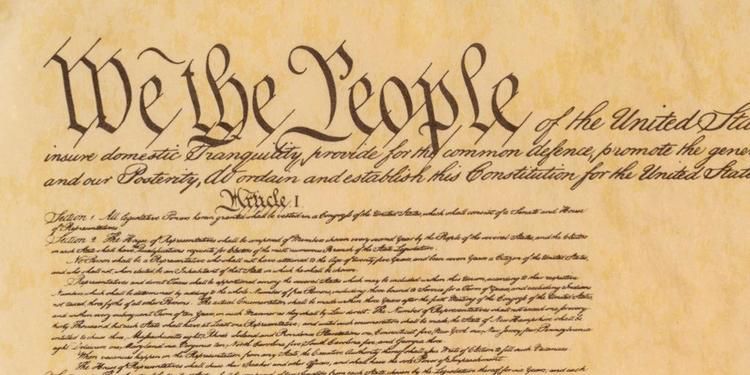 We the People of the United Sta
insure domestic Tranquility, provide for the common defence, promote the gene
and our Posterity, do ordain and establish this Constitution for the United State
Article I
Section 1 All legislative Powers herein granted shall be vested in a Congress of the United States, which shall consist of a Senate and House
of Representatives.
Section 2 The House of Representatives shall be composed of Members chosen every second Year by the People of the several States, and the Electors
in each State shall have Qualifications requisite for Electors of the most numerous Branch of the State Legislature.
No Person shall be a Representative who shall not have attained to the Age of twenty five Years and been seven Years a Citizen of the United States,
and who shall not when elected be an Inhabitant of that State in which he shall be chosen.
Representatives and direct Taxes shall be apportioned among the several States which may be included within this Union, according to their respective
Numbers which shall be determined by adding to the whole Number of free Persons including those bound to Service for a Term of Years, and excluding Indians
not taxed three fifths of all other Persons. The actual Enumeration shall be made within three Years after the first Meeting of the Congress of the United States,
and within every subsequent Term of ten Years, in such Manner as they shall by Law direct. The Number of Representatives shall not exceed one for every
thirty Thousand but each State shall have at Least one Representative; and until such enumeration shall be made the State of New Hampshire shall be
entitled to chuse three, Massachusetts eight, Rhode Island and Providence Plantations one, Connecticut five, New York six, New Jersey four, Pennsylvania
eight Delaware one, Maryland six Virginia ten, North Carolina five, South Carolina five, and Georgia three.
When vacancies happen in the Representation from any State the Executive Authority thereof shall issue Writs of Election to fill such Vacancies.
The House of Representatives shall chuse their Speaker and other Officers, and shall have the sole Power of Impeachment.